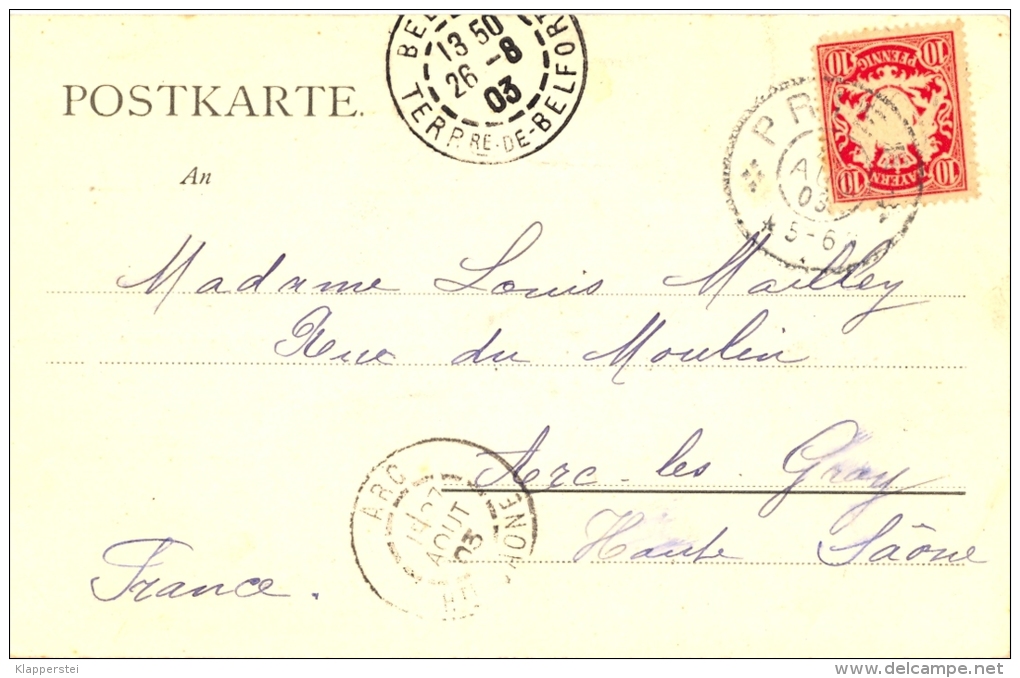 BEL
13 50
26 -8
03
TERR.RE-DE-BELFORT
10 10
PFENNIG
BAYERN
10 10
POSTKARTE.
PR
AU
03
5-6
An
Madame Louis Mailley
Rue du Moulin
Arc-les-Gray
Haute Saône
France.
ARC
AOUT
03
Klapperstei
www.delcampe.net